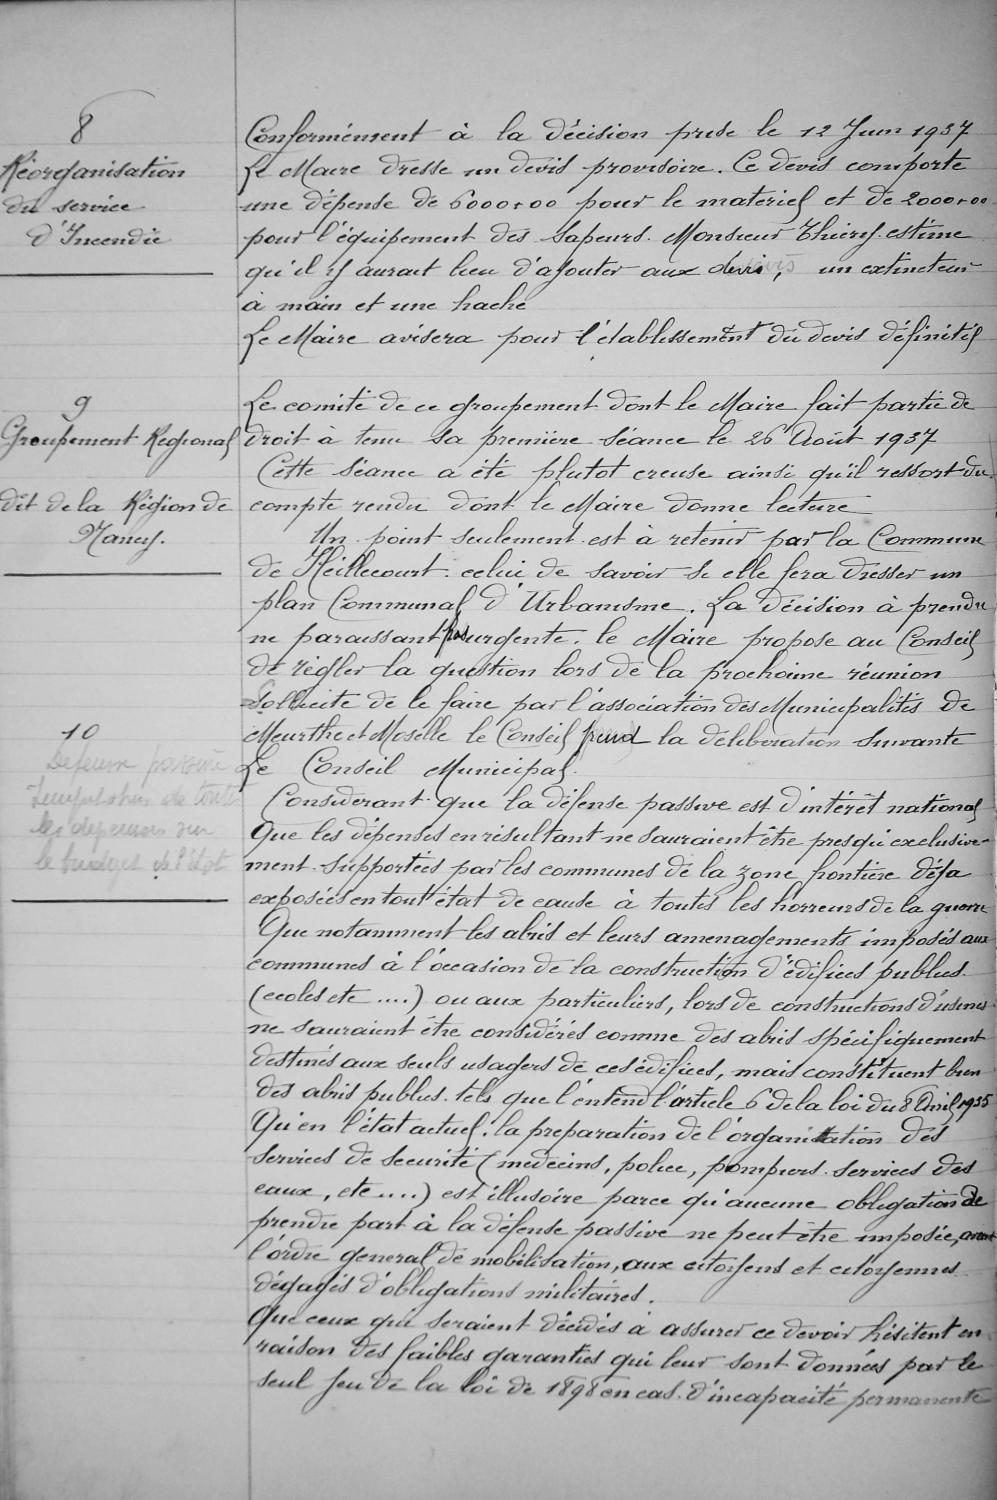 8
Réorganisation
du service
d'Incendie
Conformément à la décision prise le 12 Juin 1937
Le Maire dresse un devis provisoire. Ce devis comporte
une dépense de 6000,00 pour le matériel et de 2000,00
pour l'équipement des sapeurs. Monsieur Thiery estime
qu'il y aurait lieu d'ajouter aux devis, un extincteur
à main et une hache
Le Maire avisera pour l'établissement du devis définitif
9
Groupement Regional
dit de la Région de
Nancy.
Le comité de ce groupement dont le Maire fait partie de
droit à tenu sa première séance le 26 Août 1937
Cette séance a été plutot creuse ainsi qu'il ressort du
compte rendu dont le Maire donne lecture
Un point seulement est à retenir par la Commune
de Heillecourt : celui de savoir si elle fera dresser un
plan Communal d'Urbanisme. La décision à prendre
ne paraissant pas urgente. le Maire propose au Conseil
de régler la question lors de la prochaine réunion
10
Defense passive
de toutes
les depenses sur
le budget de l'état
Sollicité de le faire par l'association des Municipalités de
Meurthe et Moselle le Conseil prend la délibération suivante
Le Conseil Municipal.
Considerant que la défense passive est d'intérêt national
Que les dépenses en résultant ne sauraient être presqu'exclusive-
ment supportées par les communes de la zone frontière déja
exposées en tout état de cause à toutes les horreurs de la guerre
Que notamment les abris et leurs amenagements imposés aux
communes à l'occasion de la construction d'édifices publics
(ecoles etc ....) ou aux particuliers, lors de constructions d'usines
ne sauraient être considérés comme des abris spécifiquement
destinés aux seuls usagers de ces édifices, mais constituent bien
des abris publics tels que l'entend l'article 6 de la loi du 8 Avril 1935
Qu'en l'état actuel, la preparation de l'organisation des
services de securité (medecins, police, pompiers services des
eaux, etc ....) est illusoire parce qu'aucune obligation de
prendre part à la défense passive ne peut être imposée, avant
l'ordre general de mobilisation, aux citoyens et citoyennes
dégagés d'obligations militaires.
Que ceux qui seraient décidés à assurer ce devoir hésitent en
raison des faibles garanties qui leur sont données par le
seul jeu de la loi de 1898 en cas d'incapacité permanente